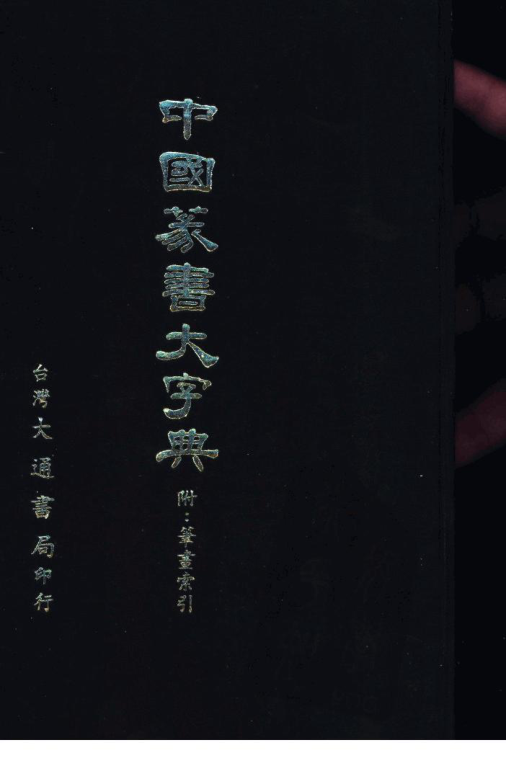 中國篆書大字典
附：筆畫索引
台灣大通書局印行